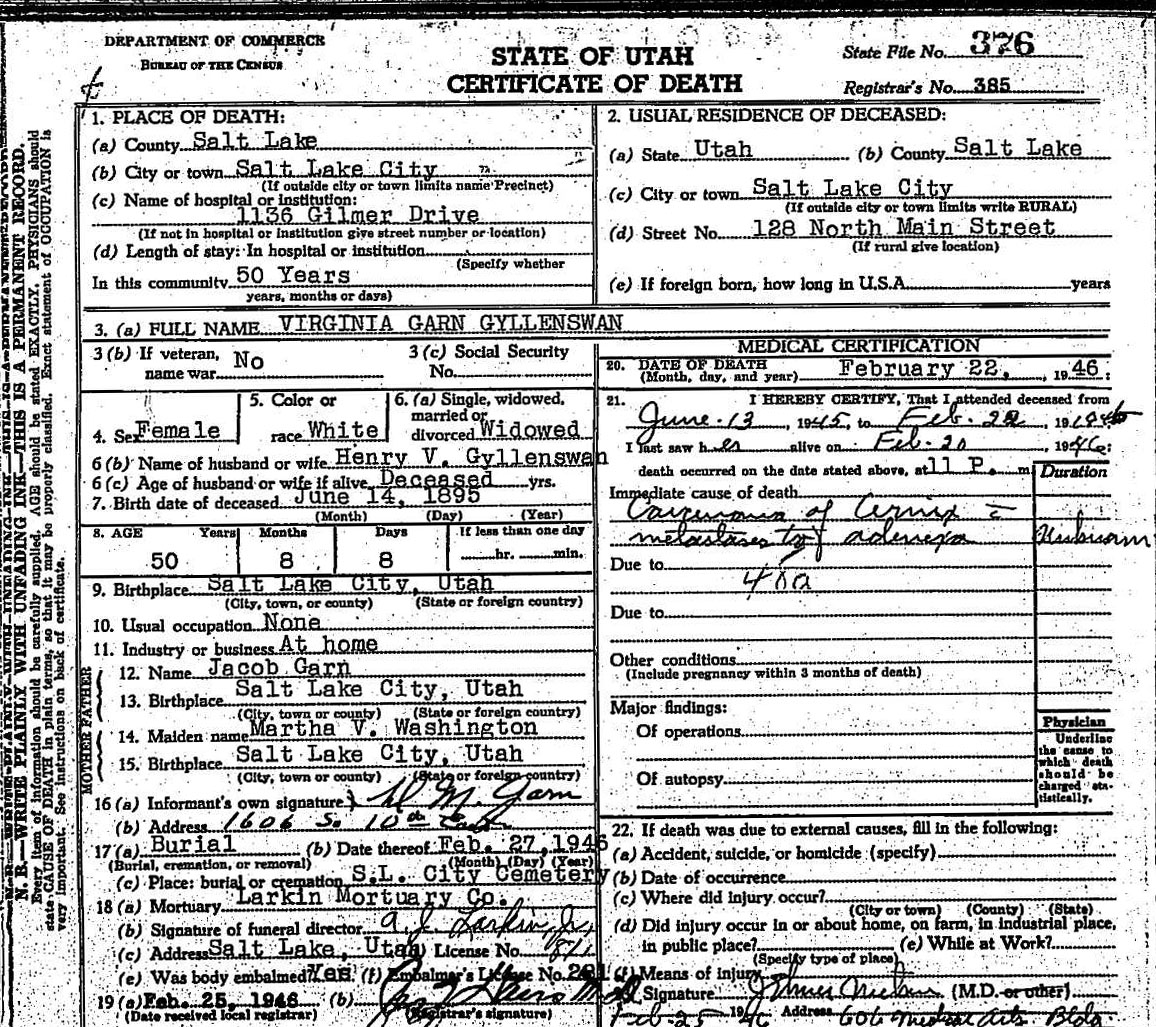 DEPARTMENT OF COMMERCE
BUREAU OF THE CENSUS
STATE OF UTAH
CERTIFICATE OF DEATH
State File No. 376
Registrar's No. 385
N. B.—WRITE PLAINLY WITH UNFADING INK—THIS IS A PERMANENT RECORD.
Every item of information should be carefully supplied. AGE should be stated EXACTLY. PHYSICIANS should
state CAUSE OF DEATH in plain terms, so that it may be properly classified. Exact statement of OCCUPATION is
very important. See instructions on back of certificate.
1. PLACE OF DEATH:
(a) County Salt Lake
(b) City or town Salt Lake City
(If outside city or town limits name Precinct)
(c) Name of hospital or institution:
1136 Gilmer Drive
(If not in hospital or institution give street number or location)
(d) Length of stay: In hospital or institution
(Specify whether
In this community 50 Years
years, months or days)
2. USUAL RESIDENCE OF DECEASED:
(a) State Utah (b) County Salt Lake
(c) City or town Salt Lake City
(If outside city or town limits write RURAL)
(d) Street No. 128 North Main Street
(If rural give location)
(e) If foreign born, how long in U.S.A. years
3. (a) FULL NAME VIRGINIA GARN GYLLENSWAN
3 (b) If veteran, name war No
3 (c) Social Security No.
4. Sex Female
5. Color or race White
6. (a) Single, widowed, married or divorced Widowed
6 (b) Name of husband or wife Henry V. Gyllenswan
6 (c) Age of husband or wife if alive Deceased yrs.
7. Birth date of deceased June 14, 1895
(Month) (Day) (Year)
8. AGE Years Months Days If less than one day
50 8 8 hr. min.
9. Birthplace Salt Lake City, Utah
(City, town, or county) (State or foreign country)
10. Usual occupation None
11. Industry or business At home
FATHER
12. Name Jacob Garn
13. Birthplace Salt Lake City, Utah
(City, town or county) (State or foreign country)
MOTHER
14. Maiden name Martha V. Washington
15. Birthplace Salt Lake City, Utah
(City, town or county) (State or foreign country)
16 (a) Informant's own signature M. Garn
(b) Address 1606 So. 10th East
17 (a) Burial (b) Date thereof Feb. 27, 1946
(Burial, cremation, or removal) (Month) (Day) (Year)
(c) Place: burial or cremation S.L. City Cemetery
18 (a) Mortuary Larkin Mortuary Co.
(b) Signature of funeral director A. J. Larkin Jr.
(c) Address Salt Lake, Utah License No.
(e) Was body embalmed? Yes (f) Embalmer's License No.
19 (a) Feb. 25, 1946 (b)
(Date received local registrar) (Registrar's signature)
MEDICAL CERTIFICATION
20. DATE OF DEATH February 22, 1946;
(Month, day, and year)
21. I HEREBY CERTIFY, That I attended deceased from
June 13 1945, to Feb. 22, 1946
I last saw her alive on Feb. 20 1946;
death occurred on the date stated above, at 11 P. m
Duration
Immediate cause of death
Carcinoma of Cervix
metastases to adenexa
Due to 48a
Due to
Other conditions
(Include pregnancy within 3 months of death)
Major findings:
Of operations
Of autopsy
Physician
Underline
the cause to
which death
should be
charged sta-
tistically.
22. If death was due to external causes, fill in the following:
(a) Accident, suicide, or homicide (specify)
(b) Date of occurrence
(c) Where did injury occur?
(City or town) (County) (State)
(d) Did injury occur in or about home, on farm, in industrial place,
in public place? (e) While at Work?
(Specify type of place)
(f) Means of injury
Signature (M.D. or other)
Feb-25 1946 Address 606 Medical Arts Bldg.